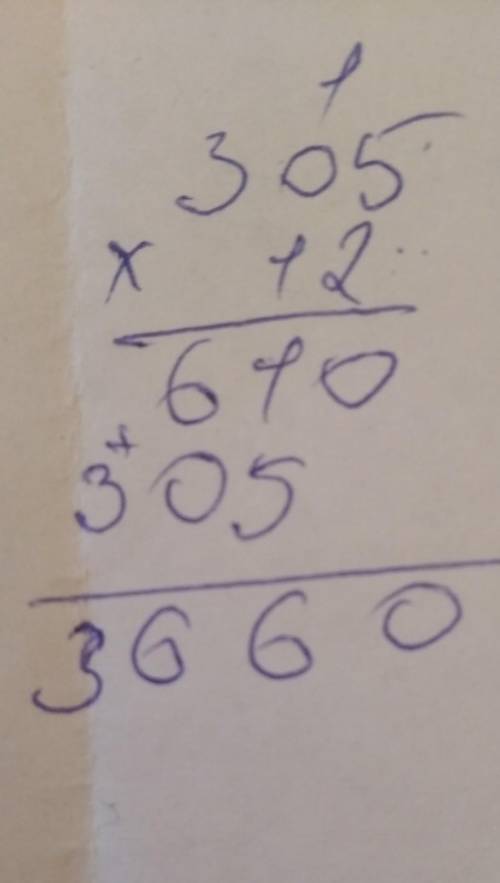 1
305
x 12
610
+
305
3660